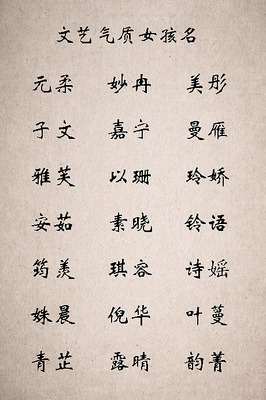 文艺气质女孩名
元柔 妙冉 美彤
子文 嘉宁 曼雁
雅芙 以珊 玲娇
安茹 素晓 铃语
筠羡 琪容 诗婳
姝晨 倪华 叶蔓
青芷 露晴 韵菁